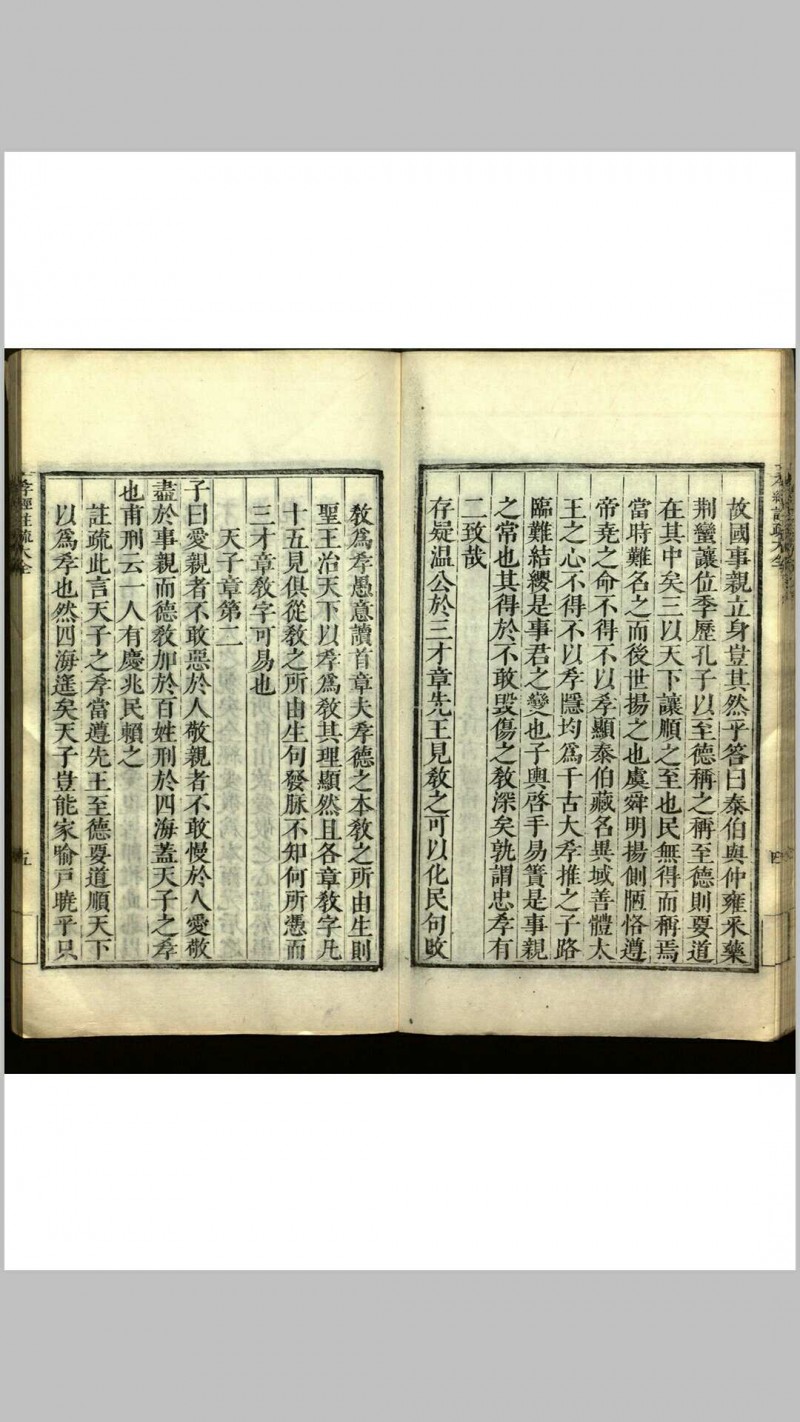 故國事親立身豈其然乎答曰泰伯與仲雍采藥
荆蠻讓位季歷孔子以至德稱之稱至德則要道
在其中矣三以天下讓順之至也民無得而稱焉
當時難名之而後世揚之也虞舜明揚側陋恪遵
帝堯之命不得不以孝顯泰伯藏名異域善體太
王之心不得不以孝隱均爲千古大孝推之子路
臨難結纓是事君之變也子輿啓手易簀是事親
之常也其得於不敢毀傷之敎深矣孰謂忠孝有
二致哉
存疑温公於三才章先王見敎之可以化民句改
敎爲孝愚意讀首章夫孝德之本敎之所由生則
聖王治天下以孝爲敎其理顯然且各章敎字凡
十五見俱從敎之所由生句發脉不知何所憑而
三才章敎字可易也
天子章第二
子曰愛親者不敢惡於人敬親者不敢慢於人愛敬
盡於事親而德敎加於百姓刑於四海蓋天子之孝
也甫刑云一人有慶兆民賴之
註疏此言天子之孝當遵先王至德要道順天下
以爲孝也然四海遙矣天子豈能家喻戸曉乎只
孝經註疏大全
五
孝經註疏大全
四